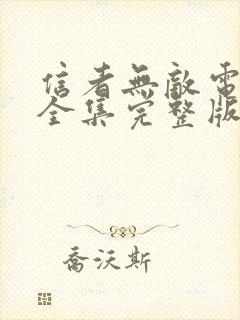 信者無敵電
全集完整版
喬沃斯